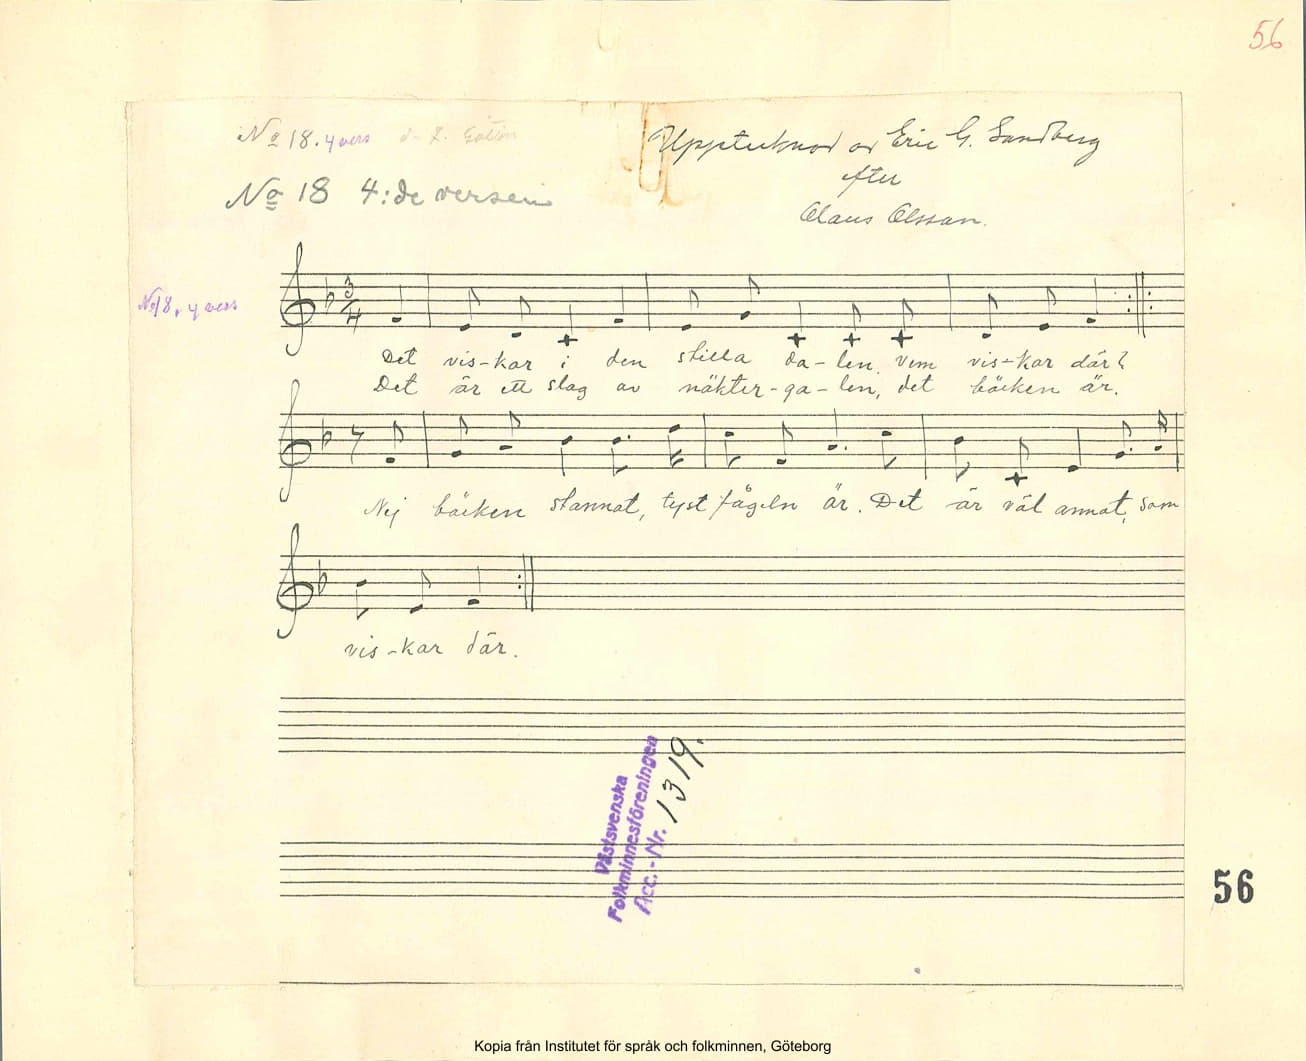 56
No 18. 4 vers
No 18 4:de versen
Upptecknad av Eric G. Sandberg
efter
Claus Olsson.
No 18. 4 vers
3
4
Det vis-kar i den stilla da-len. Vem vis-kar där?
Det är ett slag av näkter-ga-len, det bäcken är.
Nej bäcken stannat, tyst fågeln är. Det är väl annat, som
vis-kar där.
Västsvenska
Folkminnesföreningen
Acc.-Nr. 1319.
56
Kopia från Institutet för språk och folkminnen, Göteborg